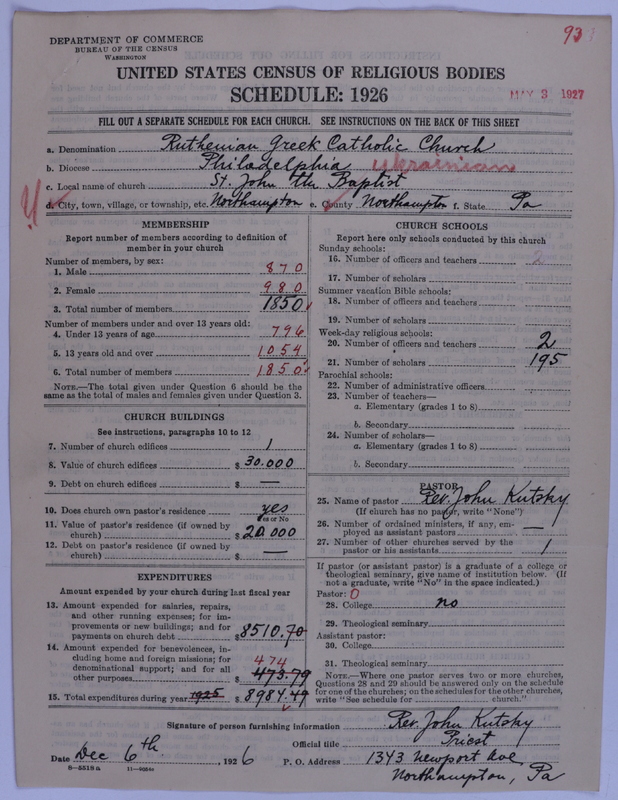 93
DEPARTMENT OF COMMERCE
BUREAU OF THE CENSUS
WASHINGTON
UNITED STATES CENSUS OF RELIGIOUS BODIES
SCHEDULE: 1926
MAY 3 1927
FILL OUT A SEPARATE SCHEDULE FOR EACH CHURCH. SEE INSTRUCTIONS ON THE BACK OF THIS SHEET
a. Denomination Ruthenian Greek Catholic Church
b. Diocese Philadelphia Ukrainian
c. Local name of church St. John the Baptist
d. City, town, village, or township, etc. Northampton e. County Northampton f. State Pa
MEMBERSHIP
Report number of members according to definition of
member in your church
Number of members, by sex:
1. Male 870
2. Female 980
3. Total number of members 1850
Number of members under and over 13 years old:
4. Under 13 years of age 796
5. 13 years old and over 1054
6. Total number of members 1850
NOTE.—The total given under Question 6 should be the
same as the total of males and females given under Question 3.
CHURCH BUILDINGS
See instructions, paragraphs 10 to 12
7. Number of church edifices 1
8. Value of church edifices $ 30.000
9. Debt on church edifices $ —
10. Does church own pastor's residence yes
Yes or No
11. Value of pastor's residence (if owned by
church) $ 20.000
12. Debt on pastor's residence (if owned by
church) $ —
EXPENDITURES
Amount expended by your church during last fiscal year
13. Amount expended for salaries, repairs,
and other running expenses; for im-
provements or new buildings; and for
payments on church debt $ 8510.70
14. Amount expended for benevolences, in-
cluding home and foreign missions; for
denominational support; and for all
474
other purposes $ 473.79
15. Total expenditures during year 1925 $ 8984.49
CHURCH SCHOOLS
Report here only schools conducted by this church
Sunday schools:
16. Number of officers and teachers 2
17. Number of scholars
Summer vacation Bible schools:
18. Number of officers and teachers
19. Number of scholars
Week-day religious schools:
20. Number of officers and teachers 2
21. Number of scholars 195
Parochial schools:
22. Number of administrative officers
23. Number of teachers—
a. Elementary (grades 1 to 8)
b. Secondary
24. Number of scholars—
a. Elementary (grades 1 to 8)
b. Secondary
PASTOR
25. Name of pastor Rev. John Kutsky
(If church has no pastor, write "None")
26. Number of ordained ministers, if any, em-
ployed as assistant pastors —
27. Number of other churches served by the
pastor or his assistants 1
If pastor (or assistant pastor) is a graduate of a college or
theological seminary, give name of institution below. (If
not a graduate, write "No" in the space indicated.)
Pastor: 0
28. College no
29. Theological seminary
Assistant pastor:
30. College
31. Theological seminary
NOTE.—Where one pastor serves two or more churches,
Questions 28 and 29 should be answered only on the schedule
for one of the churches; on the schedules for the other churches,
write "See schedule for church."
Signature of person furnishing information Rev. John Kutsky
Official title Priest
Date Dec 6th, 1926 P. O. Address 1343 Newport Ave
8—5519a 11—9084
Northampton, Pa